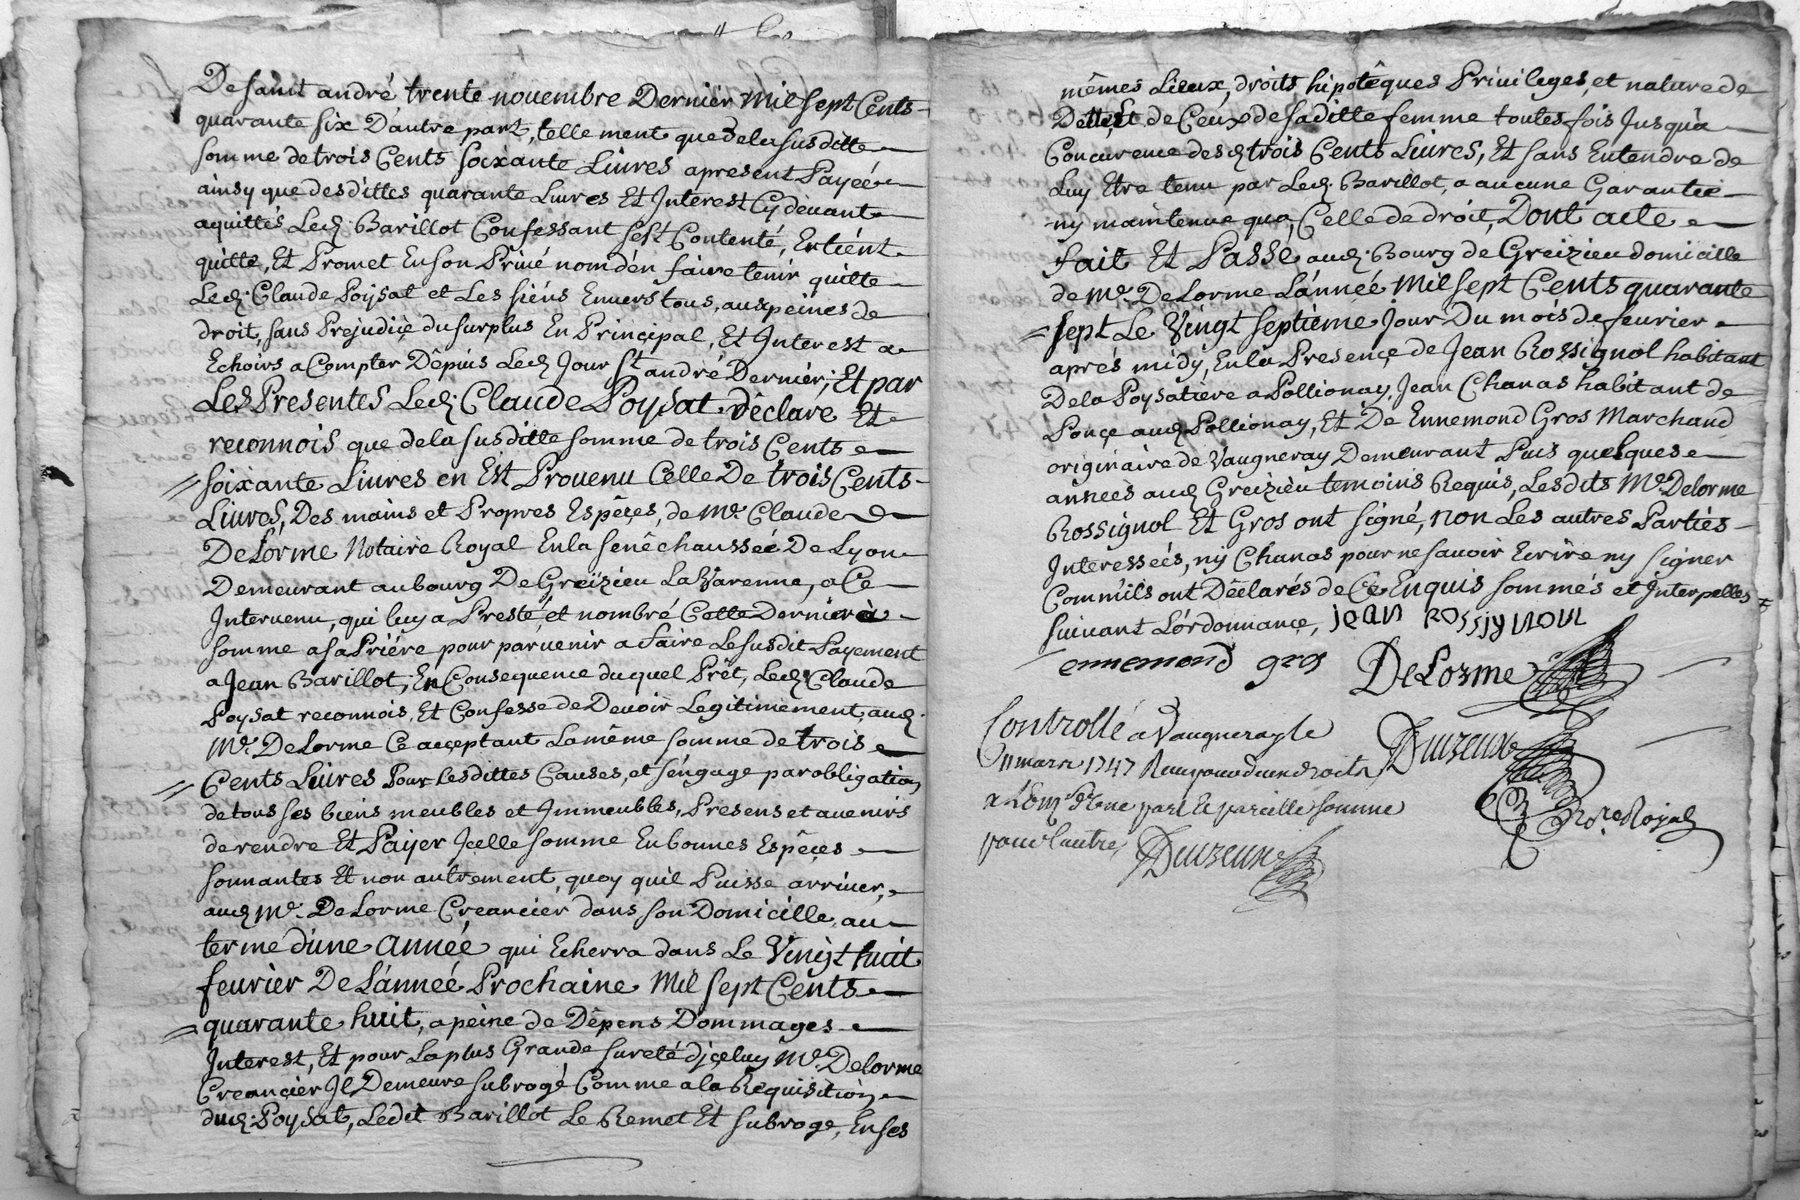 De saint andré trente novembre Dernier Mil sept Cents
quarante six D'autre part, telle ment que de la susditte
somme de trois Cents soixante Livres apresent Payéé
ainsy que desdittes quarante Livres Et Interest Cy devant
aquittés Led. Barillot Confessant s'est Contenté, En tient
quitte, Et Promet En son Privé nom d'en faire tenir quitte
Led. Claude Poÿsat et Les siéns Envers tous, aus peines de
droit, sans Prejudiçe du surplus En Principal, Et Interest a
Echoirs a Compter Dêpuis Led. Jour St. andré Dernier; Et par
Les Presentes Led. Claude Poÿsat. dêclare Et
reconnois que de la susditte somme de trois Cents
soixante Livres en Est Provenu Celle De trois Cents
Livres, Des mains et Propres Espêçes, de Me. Claude
De Lorme Notaire Royal En la senêchausseé De Lyon
Demeurant au bourg De Greïzieu La Varenne, a Ce
Intervenu, qui luy a Presté, et nombré Cette Derniere
somme a sa Priére pour parvenir a faire Le susdit Payement
a Jean Barillot; En Consequence du quel Prêt, Led. Claude
Poysat reconnois, Et Confesse de Devoir Legitimement, aud.
Me. De Lorme Ce acçeptant La même somme de trois
Cents Livres Pour lesdittes Causes, et s'engage par obligation
de tous ses biens meubles et Immeubles, Presens et avenirs
de rendre Et Paÿer Jcelle somme En bonnes Espêçes
sonnantes Et non autrement, quoy qu'il Puisse arriver,
aud. Me. De Lorme Creancier dans son Domicille, au
terme d'une année qui Echerra dans Le Vingt huit
fevrier De L'année Prochaine Mil sept Cents
quarante huit, a peine de Dêpens Dommages
Interest, Et pour La plus Grande sureté d'jçeluy Me. Delorme
Creançier Jl Demeure subrogé Comme a la Requisition
dud. Poysat, Ledit Barillot Le Remet Et subroge, En ses
mêmes Lieux, droits hipotêques Privileges, et nature de
Dette, Et de Ceux de saditte femme toutes fois Jusqu'a
Concurence desd. trois Cents Livres, Et sans Entendre de
Luy Etre tenu par Led. Barillot, a aucune Garantie
ny maintenue qu'a Celle de droit, Dont acte
fait Et Passé aud. Bourg de Greizieu domicille
de Me. De Lorme L'année Mil sept Cents quarante
sept Le Vingt septieme Jour Du mois de fevrier
aprés midÿ, En la Presençe de Jean Rossignol habitant
De la Poysatière a Pollionay, Jean Chanas habitant de
Ponçe aud. Pollionay, Et De Ennemond Gros Marchand
originaire de Vaugneray Demeurant Puis quelques
anneés aud. Greizieu temoins Requis, Lesdits Me. Delorme
Rossignol Et Gros ont signé, non Les autres Parties
Interesseés, ny Chanas pour ne savoir Ecrire ny signer
Comm'ils ont Dêclarés de Ce Enquis sommés et Interpellés
suivant L'ordonnançe, jean rossignoul
ennemond gros De Lorme
Controllé a Vaugneray le
11 mars 1747 Reçu pour d'un droits Duizeux
a L'Em. d'une part Et pareille somme Nore. Royal
pour l'autre, Duizeux